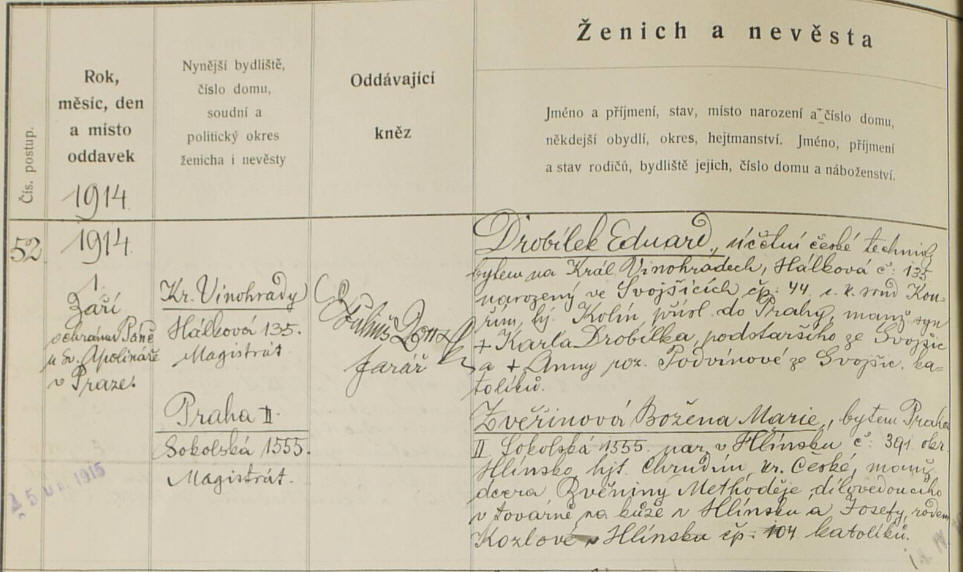 Ženich a nevěsta
Čís. postup.
Rok,
měsíc, den
a místo
oddavek
Nynější bydliště,
číslo domu,
soudní a
politický okres
ženicha i nevěsty
Oddávající
kněz
Jméno a příjmení, stav, místo narození a číslo domu,
někdejší obydlí, okres, hejtmanství. Jméno, příjmení
a stav rodičů, bydliště jejich, číslo domu a náboženství.
1914
52
1914
1.
Září
v chrámu Páně
u Sv. Apolináře
v Praze.
Kr. Vinohrady
Hálková 135.
Magistrát
Praha II.
Sokolská 1555.
Magistrát.
farář
Drobílek Eduard, účetní české techniky
bytem na Král. Vinohradech, Hálková č. 135
narozený ve Svojšicích čp. 44, s. k. soud Kou-
řim, hj. Kolín přísl. do Prahy, manž. syn
+ Karla Drobílka, podstaršího ze Svojšic
a + Anny roz. Podvínové ze Svojšic, ka-
tolíků.
Zvěřinová Božena Marie, bytem Praha
II Sokolská 1555. nar. v Hlínsku č. 341. okr.
Hlínsko, hjt. Chrudim, kr. České, manž.
dcera Zvěřiny Methoděje, dílovedoucího
v továrně na kůže v Hlínsku a Josefy, rodem
Kozlové v Hlínsku čp. 104 katolíků.
1915